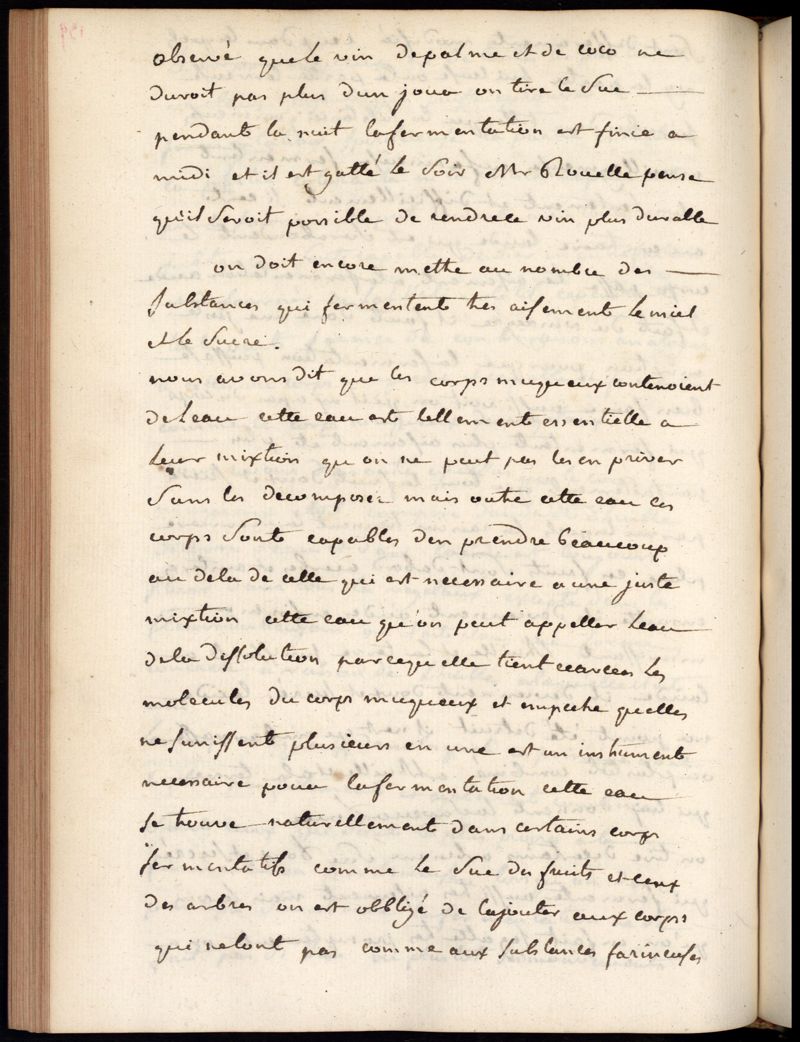 observé que le vin de palme et de coco ne
duroit pas plus d'un jour on tire le suc
pendant la nuit la fermentation est finie a
midi et il est gatté le soir Mr Rouelle pense
qu'il seroit possible de rendre ce vin plus durable
on doit encore mettre au nombre des
substances qui fermentent tres aisement le miel
et le sucre.
nous avons dit que les corps muqueux contenoient
de leau cette eau est tellement essentielle a
leur mixtion qu on ne peut pas les en priver
sans les decomposer mais outre cette eau ces
corps sont capables d'en prendre beaucoup
au dela de celle qui est necessaire a une juste
mixtion cette eau qu'on peut appeller leau
de la dissolution parcequ elle tient ecartées les
molecules du corps muqueux et empeche quelles
ne sunissent plusieurs en une est un instrument
necessaire pour la fermentation cette eau
se trouve naturellement dans certains corps
fermentatifs comme le suc des fruits et ceux
des arbres on est obbligé de lajouter aux corps
qui nelont pas comme aux substances farineuses